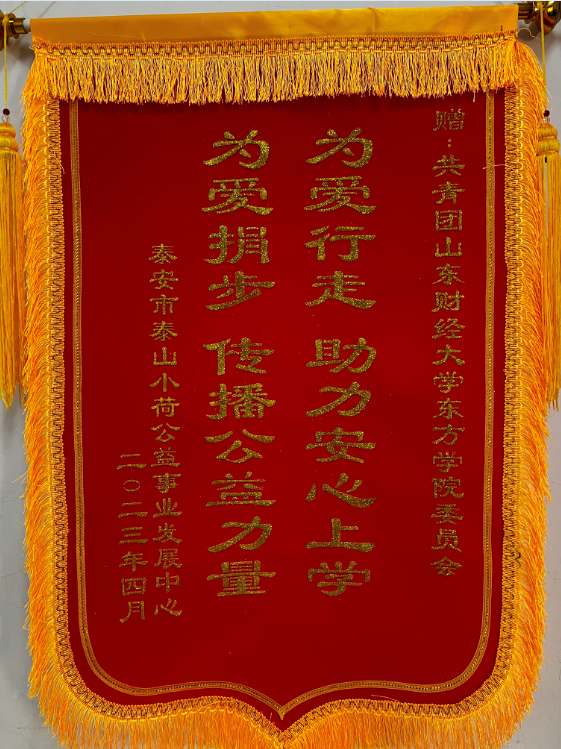 赠：共青团山东财经大学东方学院委员会
为爱行走 助力安心上学
为爱捐步 传播公益力量
泰安市泰山小荷公益事业发展中心
二〇二三年四月